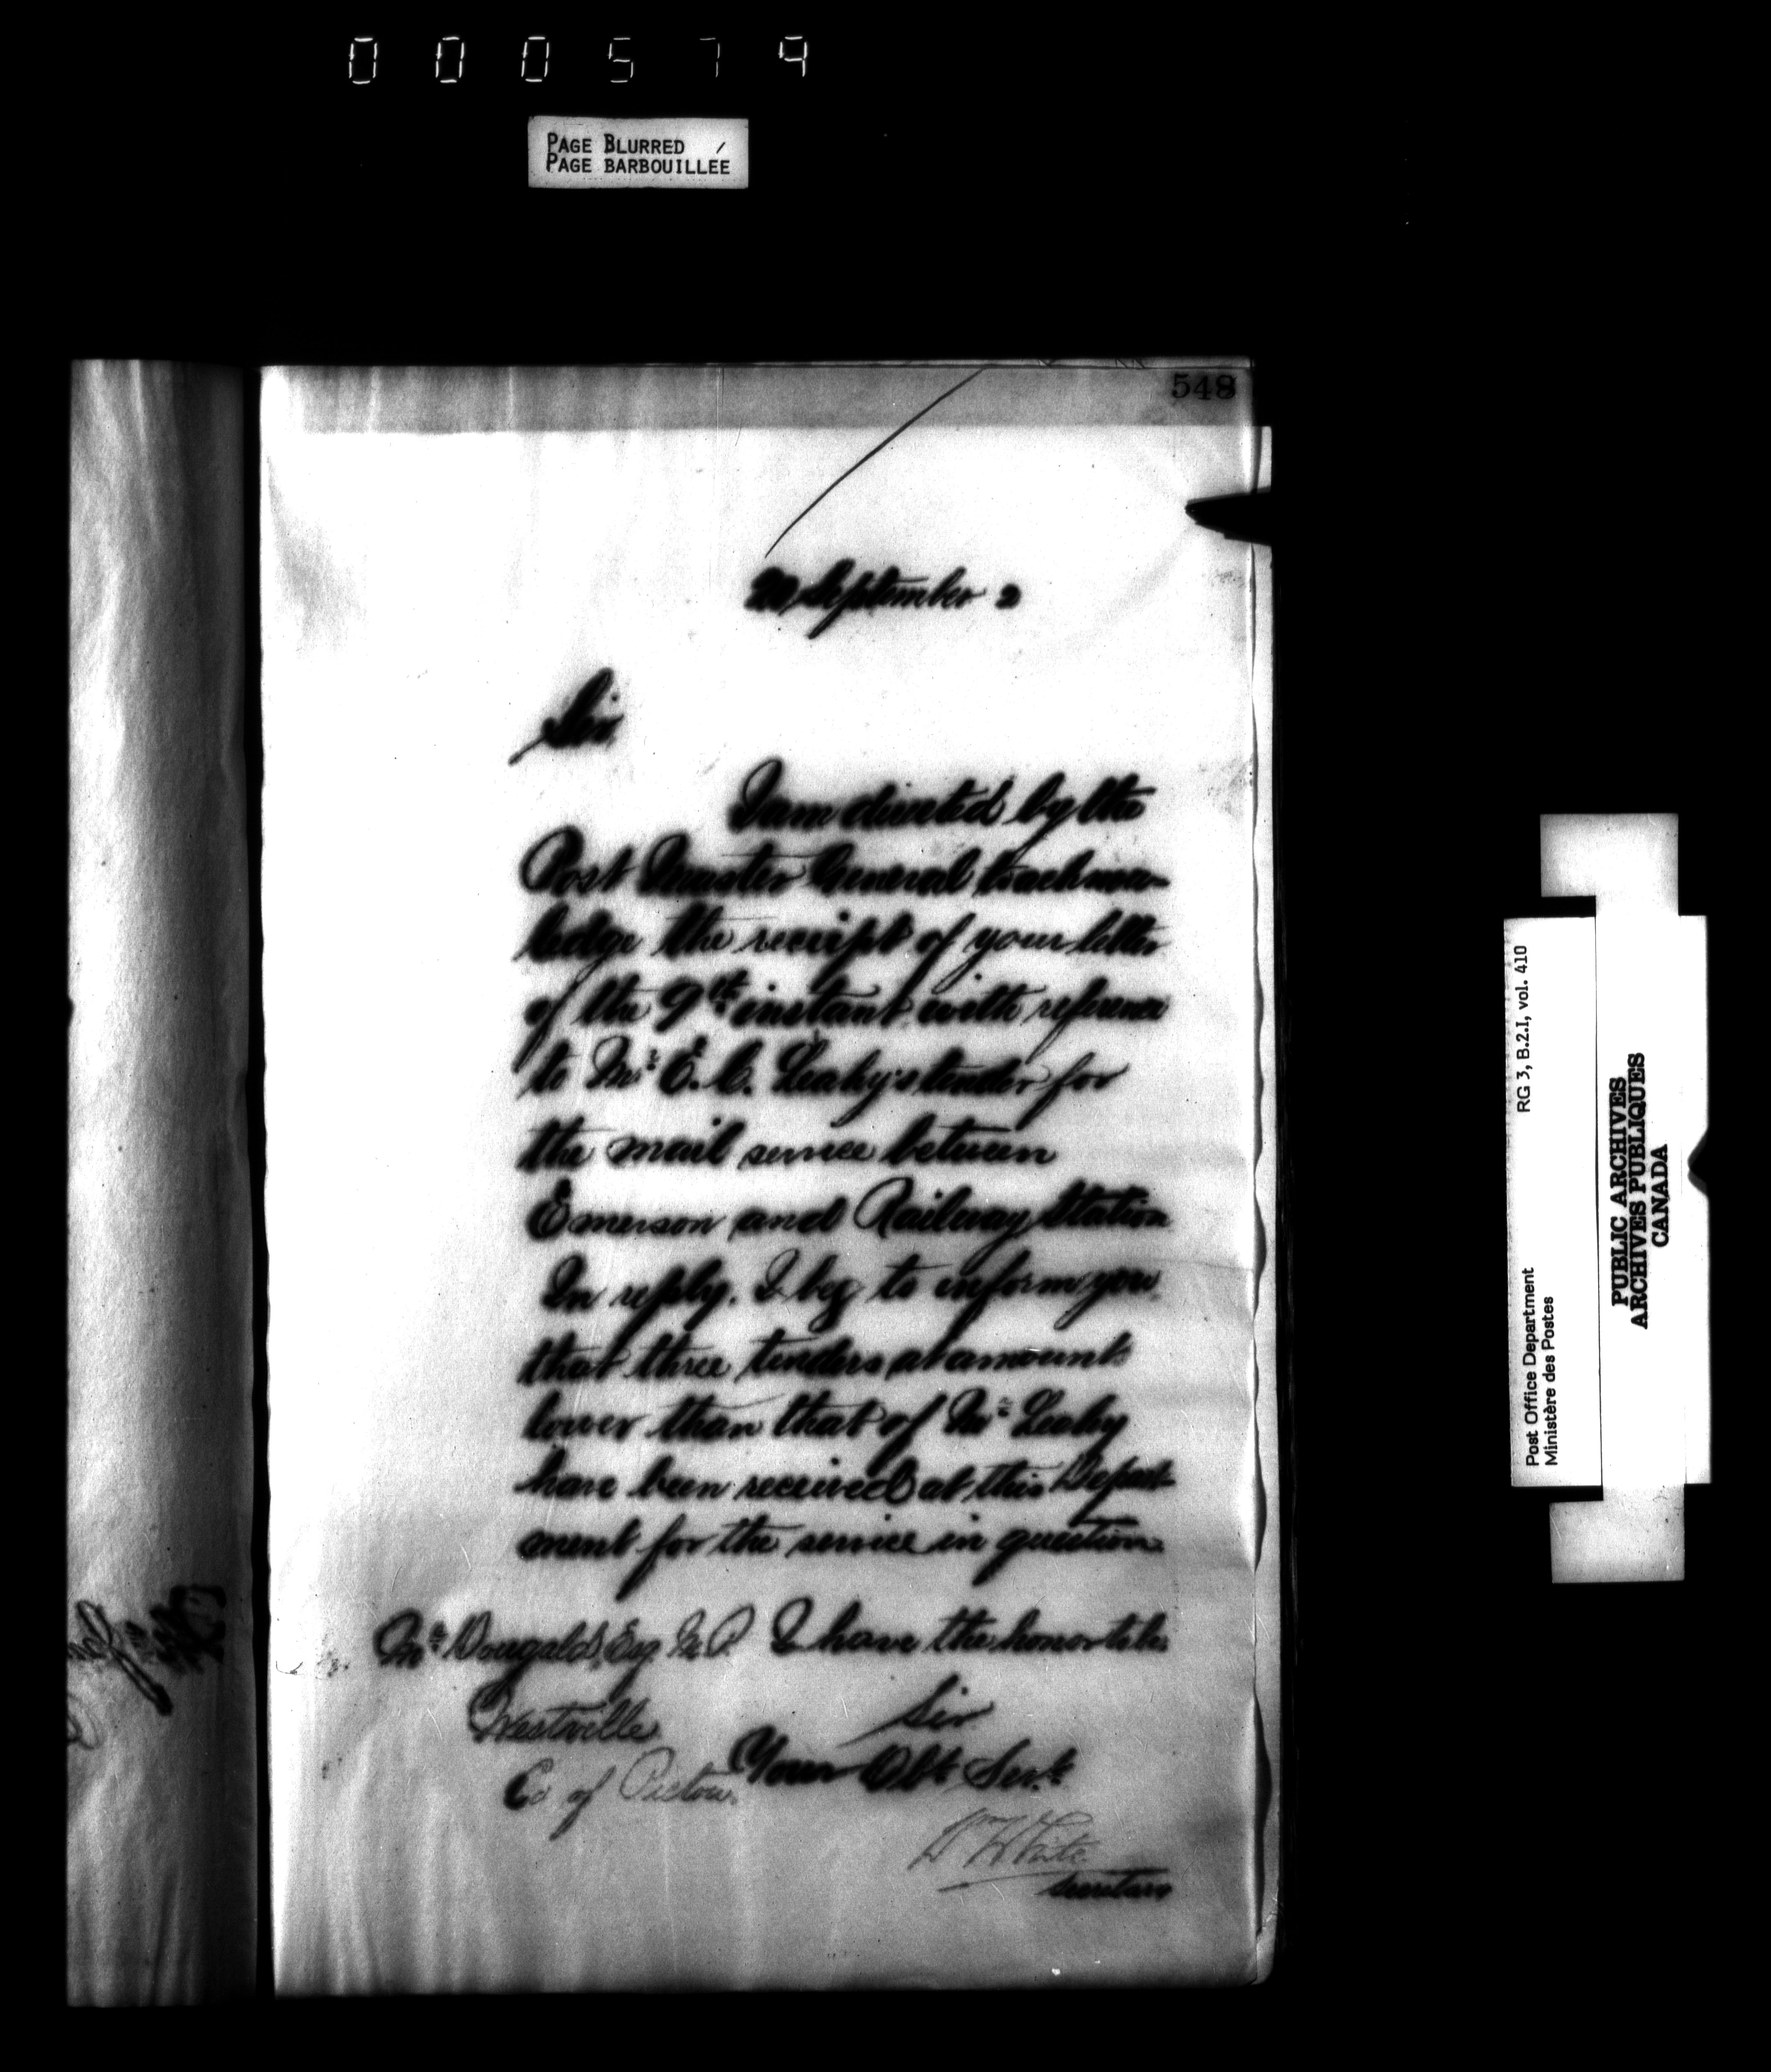 000574
PAGE BLURRED
PAGE BARBOUILLÉE
548
20 September 2
Sir,
I am directed by the
Post Master General to acknow-
ledge the receipt of your letter
of the 9th instant with reference
to Mr E. C. Leahy's tender for
the mail service between
Emerson and Railway Station
In reply. I beg to inform you
that three tenders at amounts
lower than that of Mr Leahy
have been received at this Depart-
ment for the service in question.
I have the honor to be
Sir
Your Obt Servt
Wm White
Secretary
Mc Dougald, Esq M.P.
Westville
Co of Pictou.
RG 3, B.2.I, vol. 410
Post Office Department
Ministère des Postes
PUBLIC ARCHIVES
ARCHIVES PUBLIQUES
CANADA